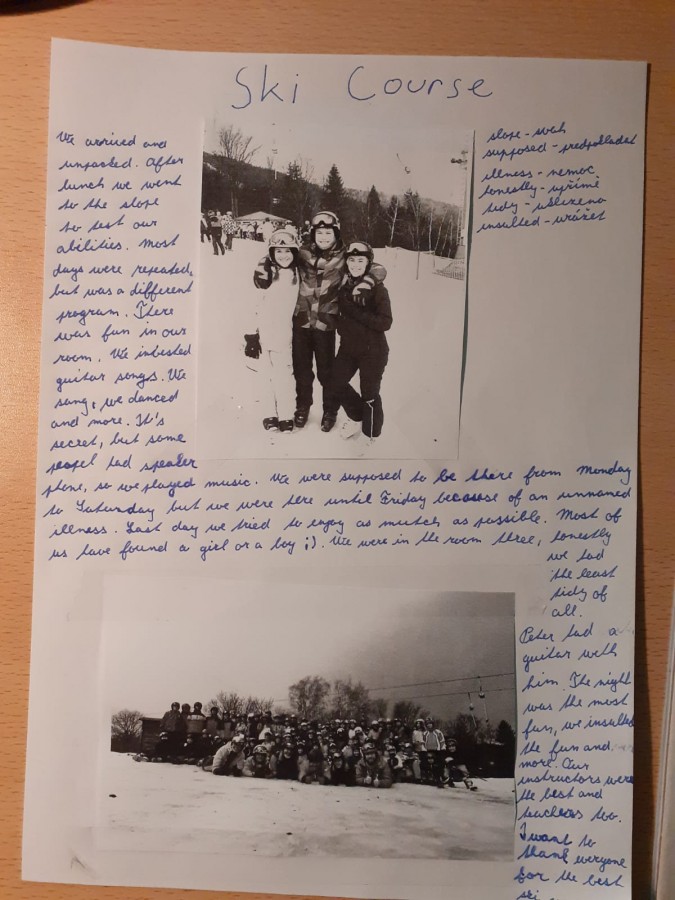 Ski Course
We arrived and
unpacked. After
lunch we went
to the slope
to test our
abilities. Most
days were repeated,
but was a different
program. There
was fun in our
room. We
guitar songs. We
sang, we danced
and more. It's
secret, but some
had speaker
phone, so we played music. We were supposed to be there from Monday
to Saturday but we were here until Friday because of an unnamed
illness. Last day we tried to enjoy as mutch as possible. Most of
us have found a girl or a boy ;). We were in the room three, honestly
we had
the least
tidy of
all.
Peter had a
guitar with
him. The night
was the most
fun, we insulted
the fun and
more. Our
instructors were
the best and
teachers too.
I want to
thank everyone
for the best
ski
slope - svah
supposed - předpokládat
illness - nemoc
honestly - upřímě
tidy - uklizeno
insulted - urážet